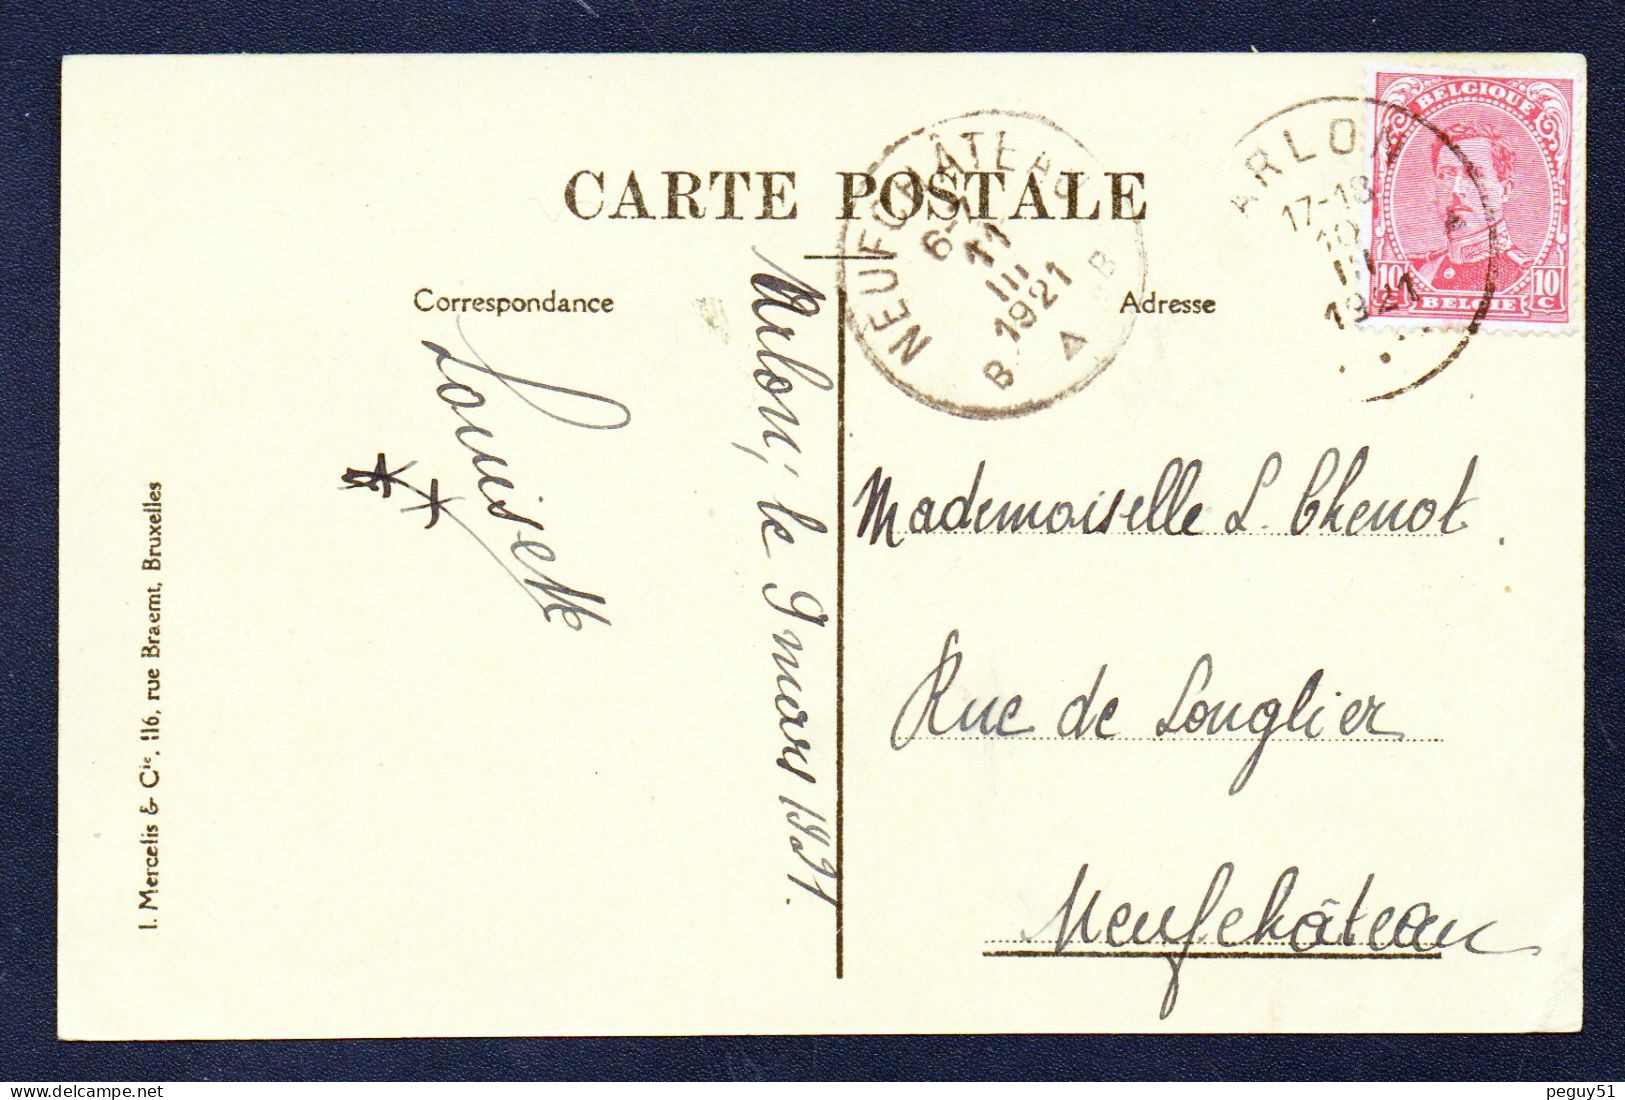 CARTE POSTALE
Correspondance
Adresse
NEUFCHÂTEAU
11
III
1921
B B
ARLON
17-18
10
III
1921
BELGIQUE
10 10 C
BELGIE
Arlon, le 9 mars 1921.
Louisette
Mademoiselle L. Chenot.
Rue de Longlier
Neufchâteau
I. Mercelis & Cie, 116, rue Braemt, Bruxelles
peguy51